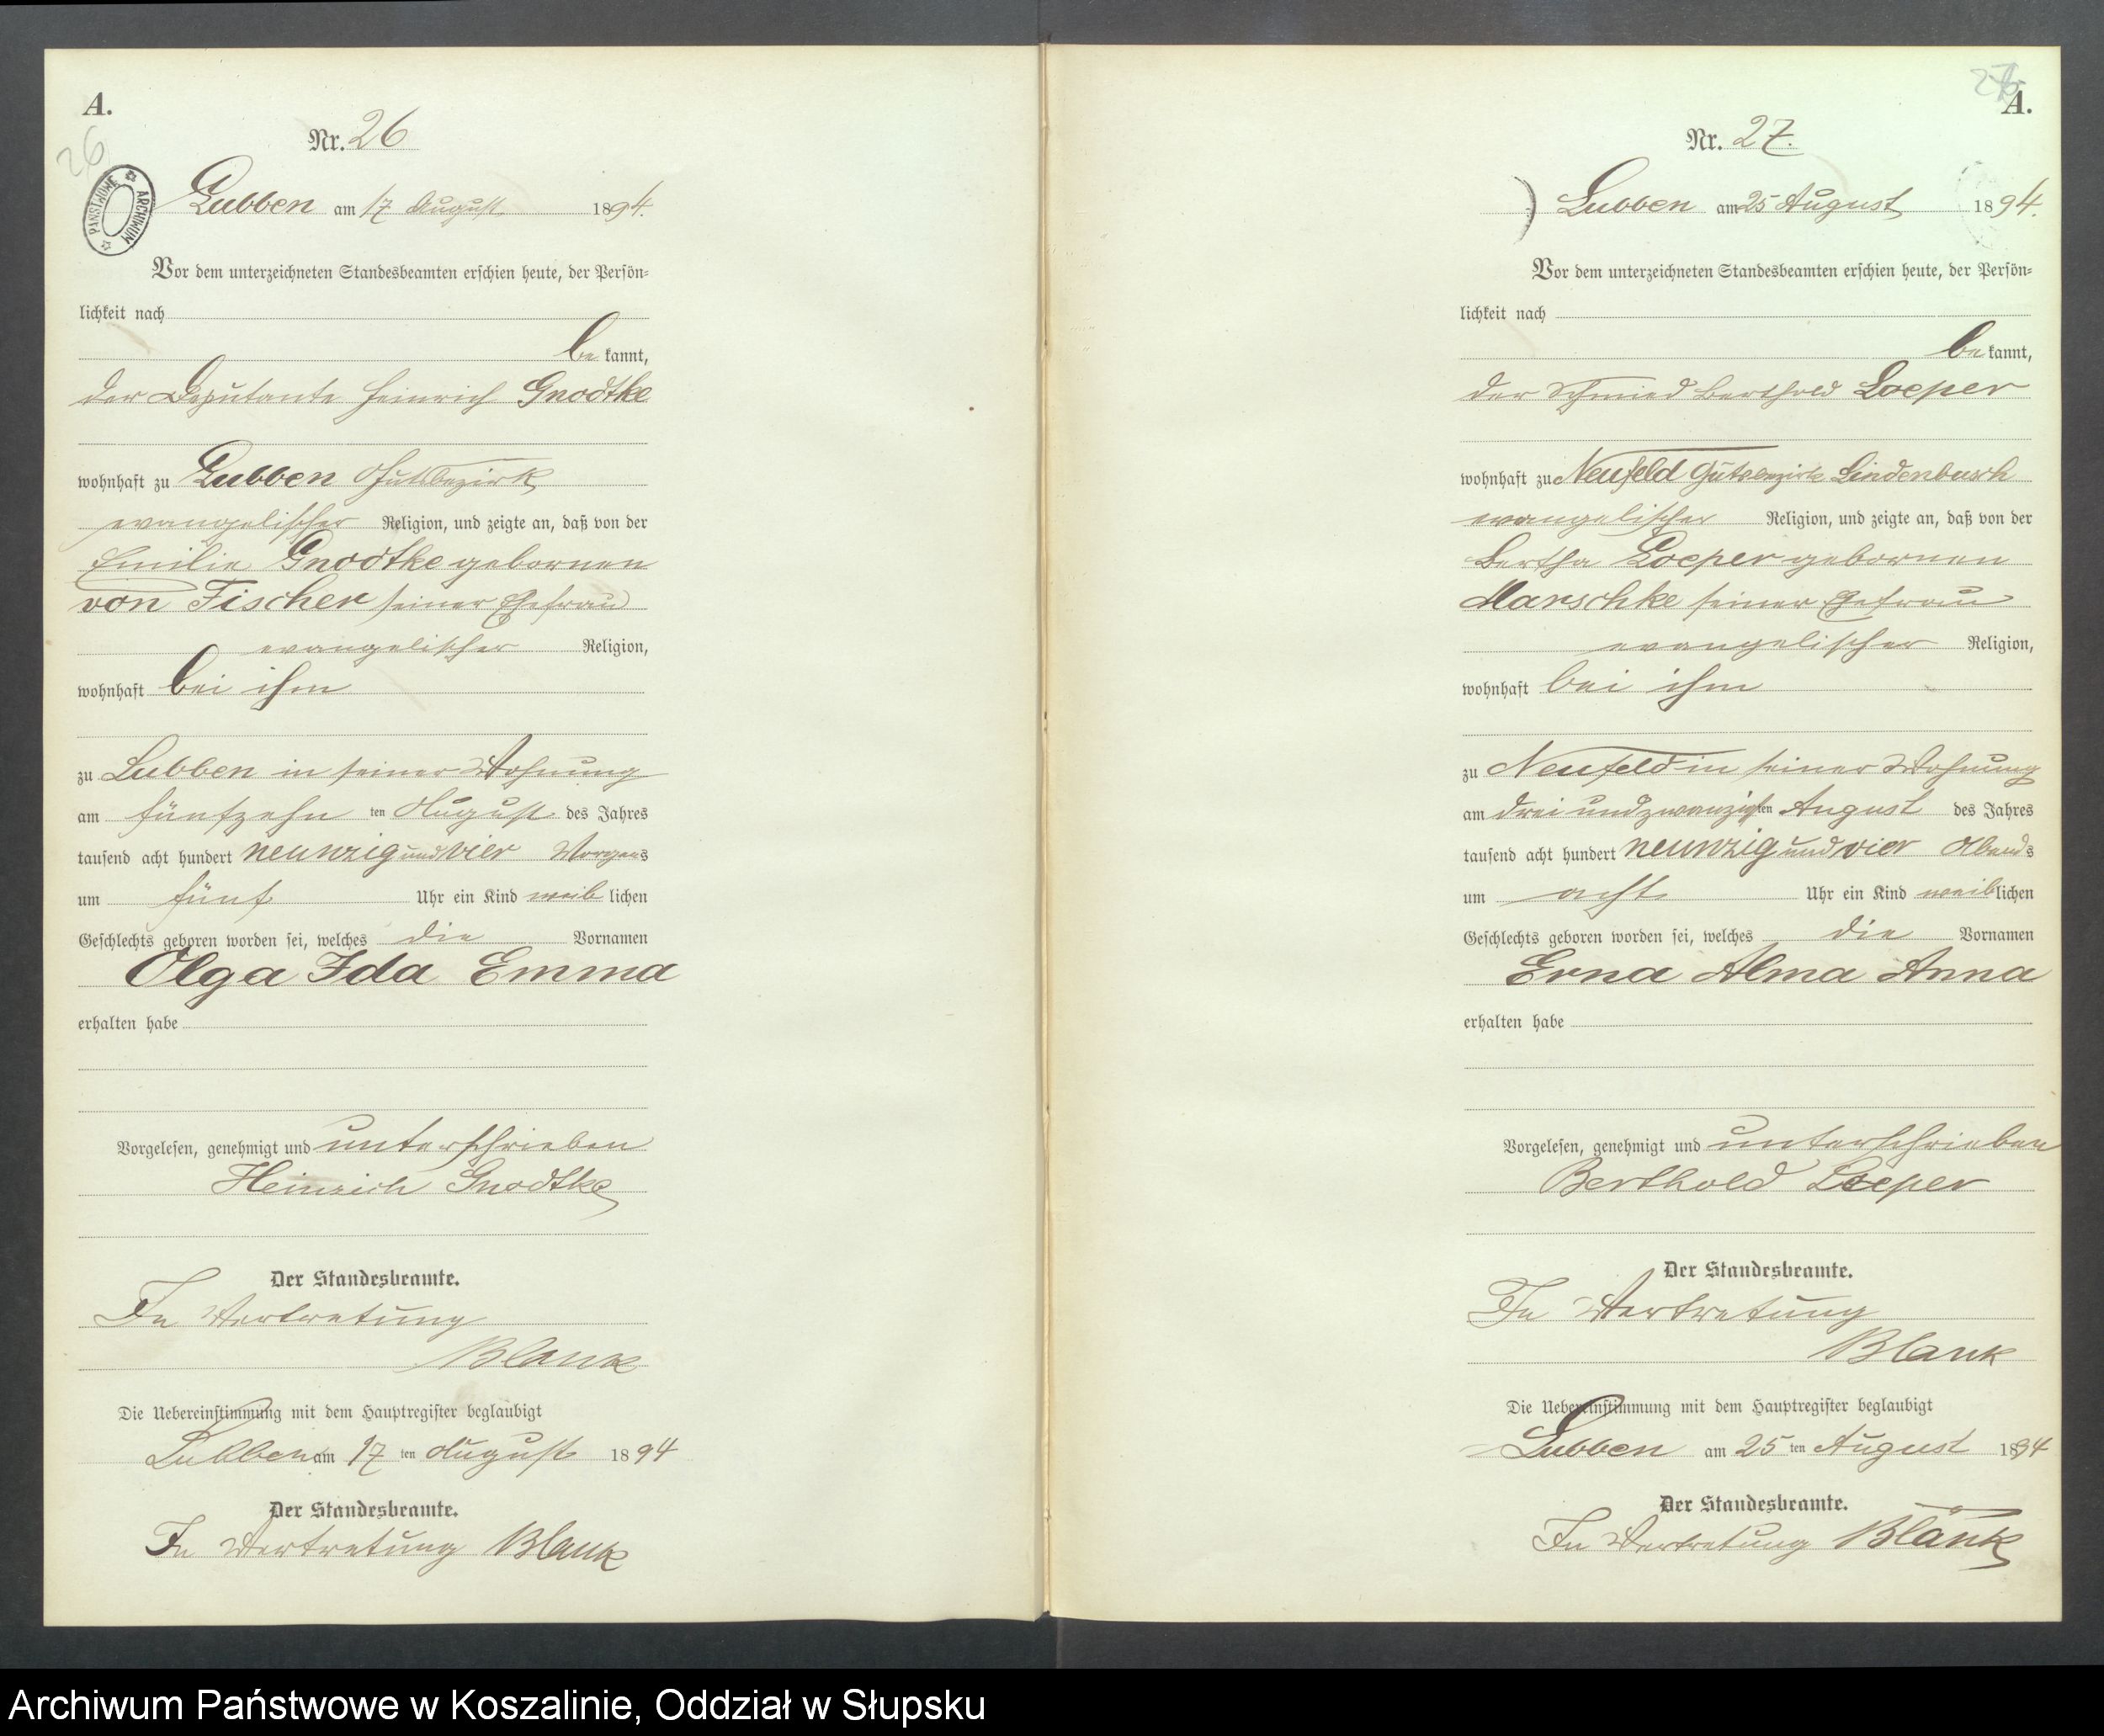 A.
26
Nr. 26
ARCHIWUM PAŃSTWOWE
Lubben am 17 August 1894.
Vor dem unterzeichneten Standesbeamten erschien heute, der Persön=
lichkeit nach
be kannt,
der Deputante Heinrich Gnodtke
wohnhaft zu Lubben Gutsbezirk
evangelischer Religion, und zeigte an, daß von der
Emilie Gnodtke gebornen
von Fischer seiner Ehefrau
evangelischer Religion,
wohnhaft bei ihm
zu Lubben in seiner Wohnung
am fünfzehn ten August des Jahres
tausend acht hundert neunzig und vier Morgens
um fünf Uhr ein Kind weib lichen
Geschlechts geboren worden sei, welches die Vornamen
Olga Ida Emma
erhalten habe
Vorgelesen, genehmigt und unterschrieben
Heinrich Gnodtke
Der Standesbeamte.
In Vertretung
Blank
Die Uebereinstimmung mit dem Hauptregister beglaubigt
Lubben am 17 ten August 1894
Der Standesbeamte.
In Vertretung Blank
A.
Nr. 27.
Lubben am 25 August 1894.
Vor dem unterzeichneten Standesbeamten erschien heute, der Persön=
lichkeit nach
be kannt,
der Schmied Berthold Loeper
wohnhaft zu Neufeld Gutsbezirk Lindenbusch
evangelischer Religion, und zeigte an, daß von der
Bertha Loeper gebornen
Marschke seiner Ehefrau
evangelischer Religion,
wohnhaft bei ihm
zu Neufeld in seiner Wohnung
am drei undzwanzigsten August des Jahres
tausend acht hundert neunzig und vier Abends
um acht Uhr ein Kind weiblichen
Geschlechts geboren worden sei, welches die Vornamen
Erna Alma Anna
erhalten habe
Vorgelesen, genehmigt und unterschrieben
Berthold Loeper
Der Standesbeamte.
In Vertretung
Blank
Die Uebereinstimmung mit dem Hauptregister beglaubigt
Lubben am 25 ten August 1894
Der Standesbeamte.
In Vertretung Blank
Archiwum Państwowe w Koszalinie, Oddział w Słupsku